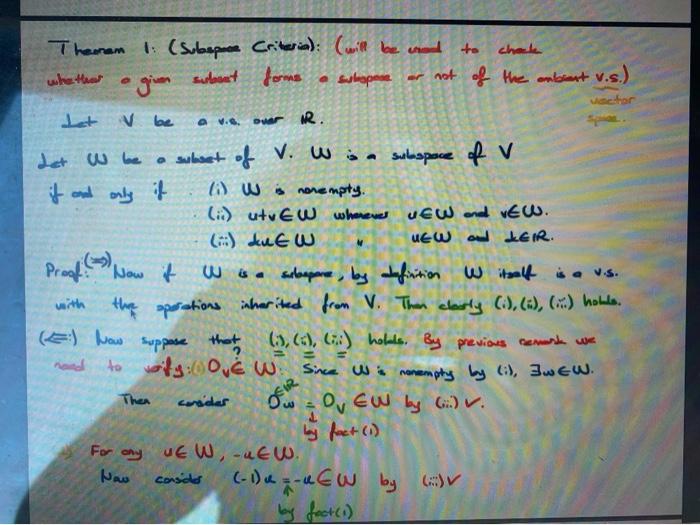 Theorem 1: (Subspace Criteria): (will be used to check
whether a given subset forms a subspace or not of the ambient v.s.)
vector
space.
Let V be a v.s. over IR.
Let W be a subset of V. W is a subspace of V
if and only if (i) W is nonempty.
(ii) u+v∈W whenever u∈W and v∈W.
(iii) ku∈W " u∈W and k∈IR.
Proof: (⇒) Now if W is a subspace, by definition W itself is a v.s.
with the operations inherited from V. Then clearly (i), (ii), (iii) holds.
(⇐:) Now suppose that (i), (ii), (iii) holds. By previous remark we
need to verify: 0v ∈? W. Since W is nonempty by (i), ∃w∈W.
Then consider 0w = 0v ∈W by (iii) ✓.
∈IR
by fact (1)
For any u∈W, -u∈W.
Now consider (-1)u = -u∈W by (iii) ✓
by fact (1)